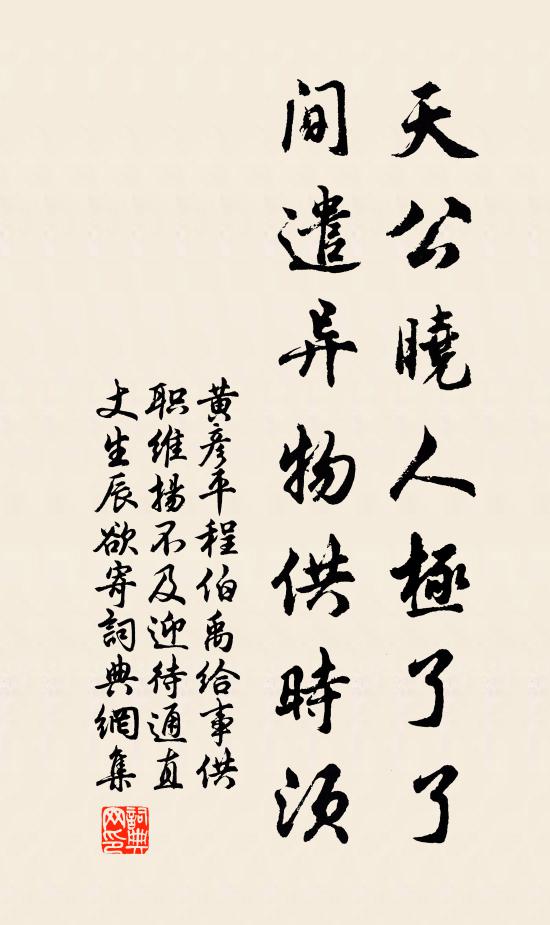 天公曉人極了了
间遣异物供時须
黄彦平程伯禹给事供
职维揚不及迎待通直
丈生辰欲寄詞典網集
詞典网印